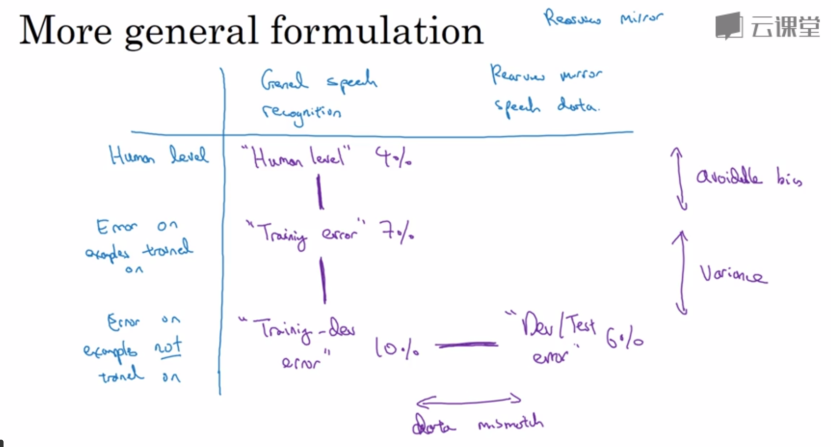 More general formulation
Rearview mirror
云课堂
General speech
recognition
Rearview mirror
speech data.
Human level
"Human level" 4%
avoidable bias
Error on
examples trained
on
"Training error" 7%
Variance
Error on
examples not
trained on
"Training-dev
error" 10%
"Dev/Test
error" 6%
data mismatch